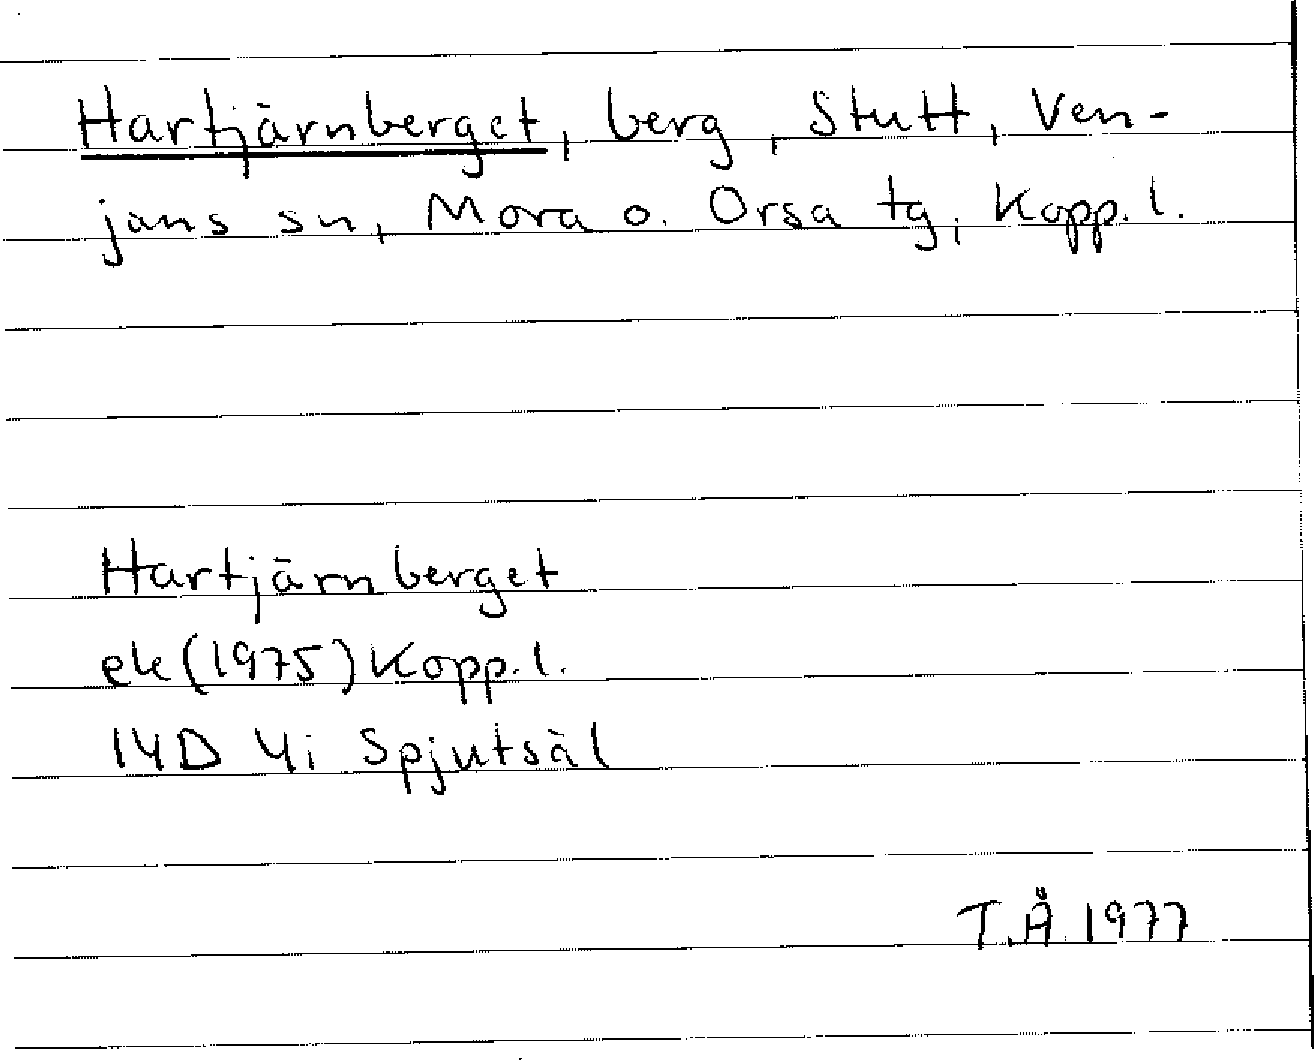 Hartjärnberget, berg, Stutt, Ven-
jans sn, Mora o. Orsa tg, Kopp. l.
Hartjärnberget
ek (1975) Kopp. l.
14D 4i Spjutsäl
T.Å. 1977